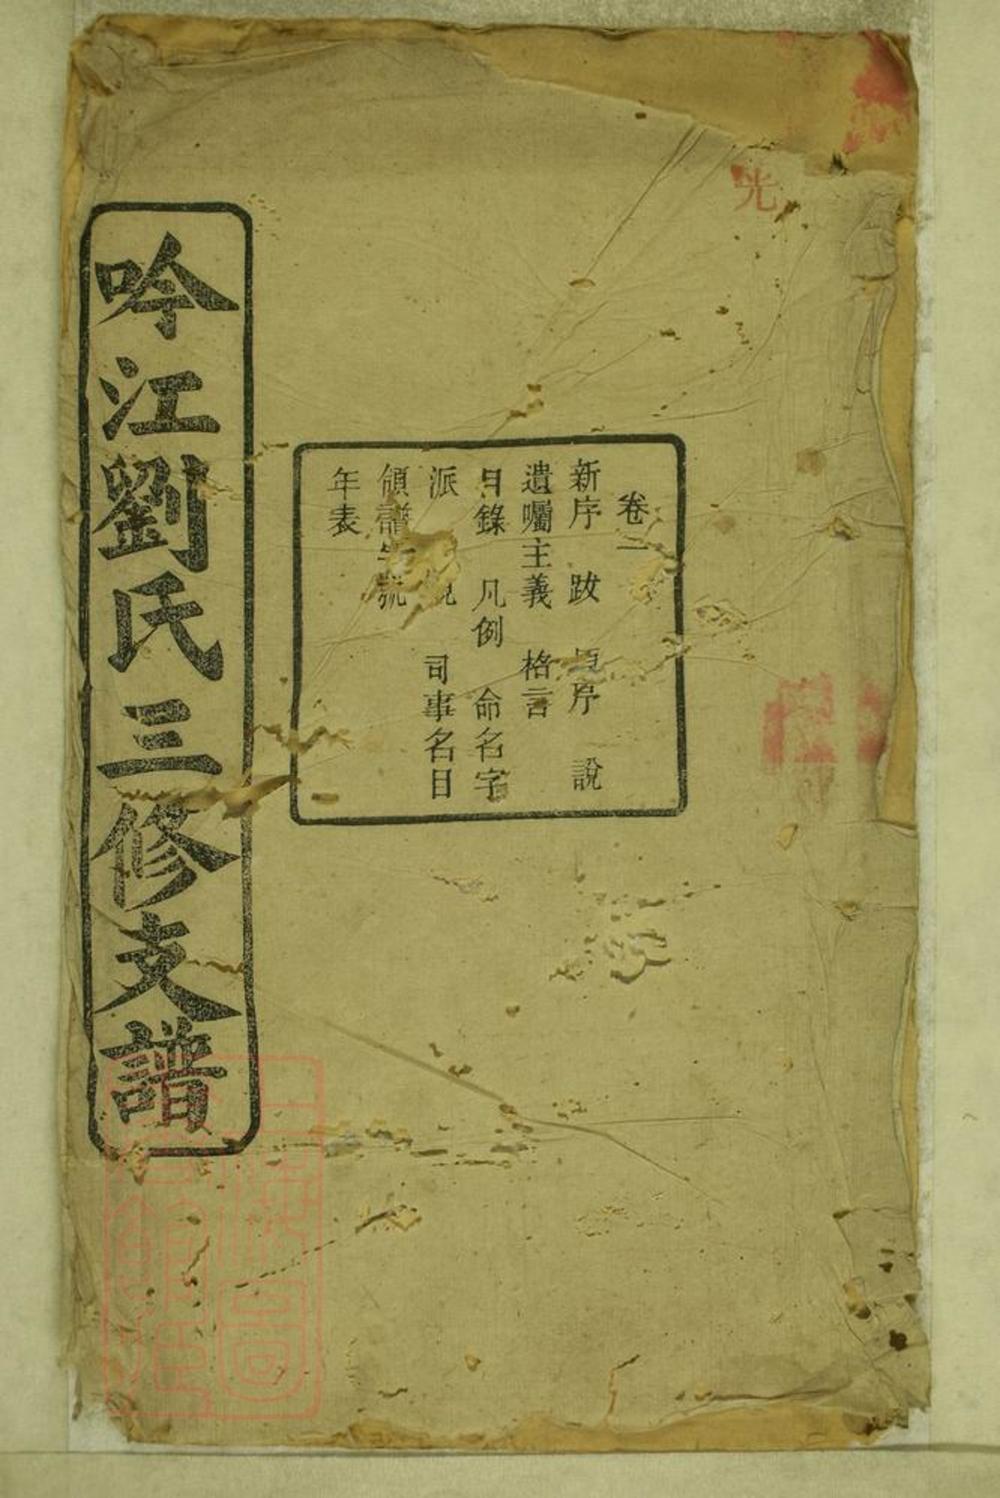 吟江劉氏三修支譜
光
卷一
新序 跋 原序 說
遺囑主義 格言
目錄 凡例 命名字
派 司事名目
領譜 號
年表